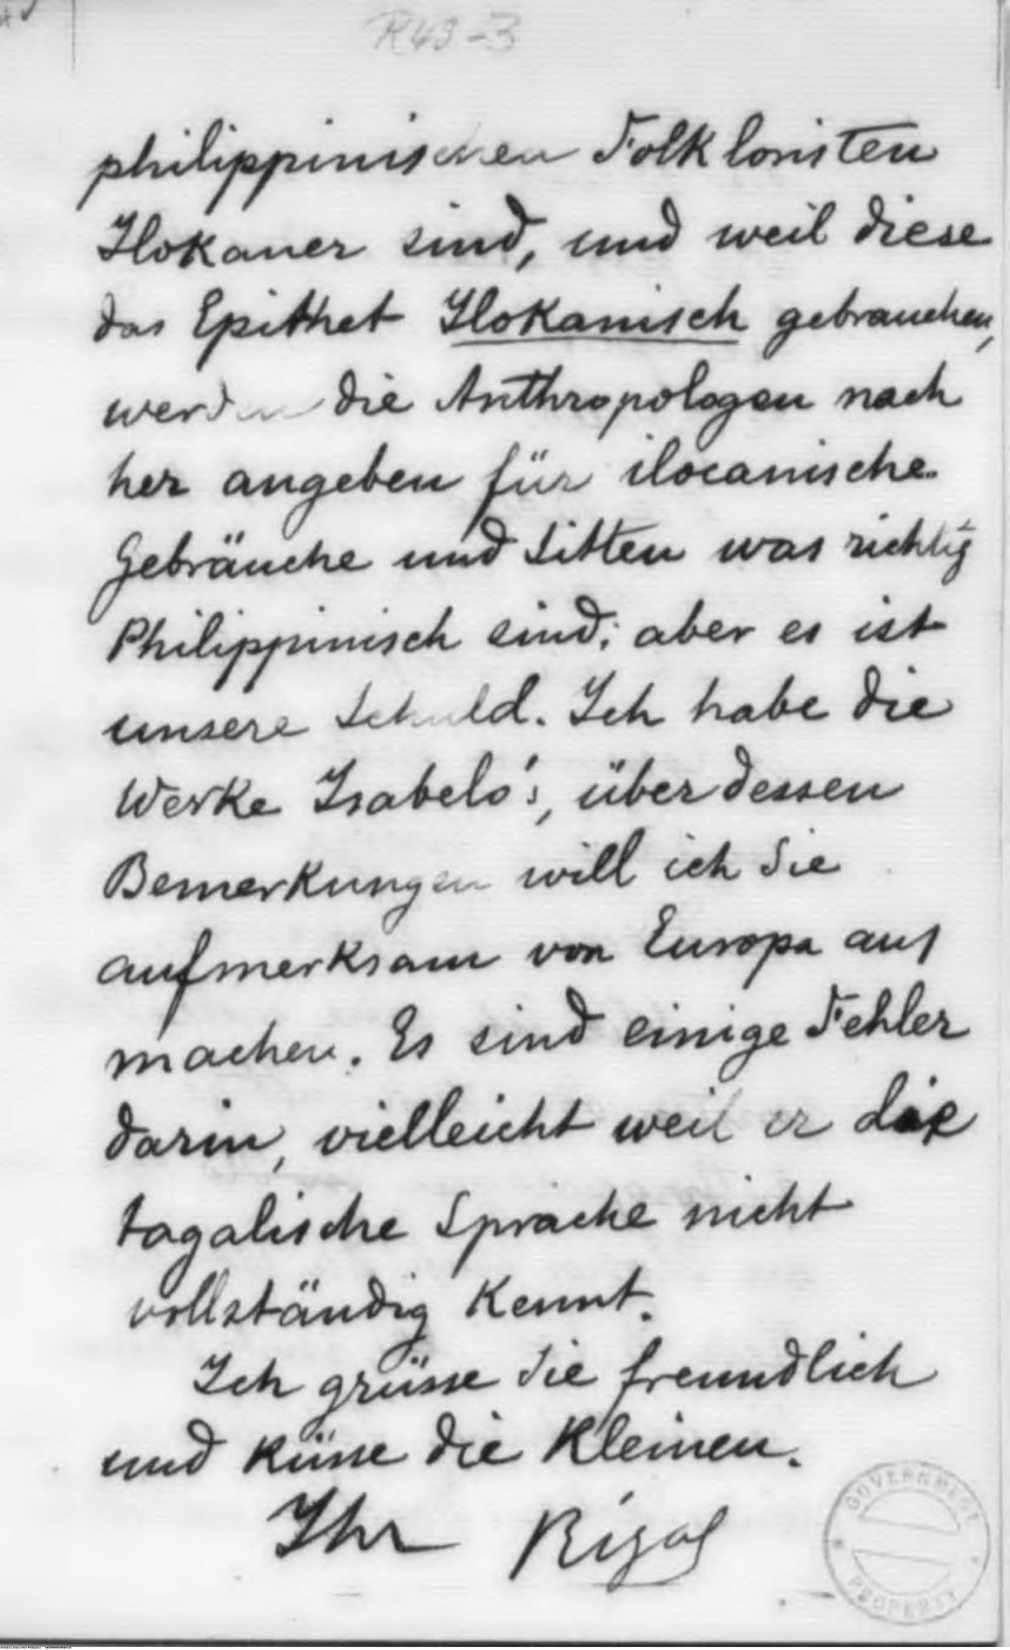 R43-3
philippinischen Folkloristen
Ilokaner sind, und weil diese
das Epithet Ilokanisch gebrauchen,
werden die Anthropologen nach
her angeben für ilocanische
Gebräuche und Sitten was richtig
Philippinisch sind; aber es ist
unsere Schuld. Ich habe die
Werke Isabelo's, über dessen
Bemerkungen will ich Sie
aufmerksam von Europa aus
machen. Es sind einige Fehler
darin, vielleicht weil er die
tagalische Sprache nicht
vollständig kennt.
Ich grüsse Sie freundlich
und küsse die Kleinen.
Ihr Rizal
GOVERNMENT
PROPERTY